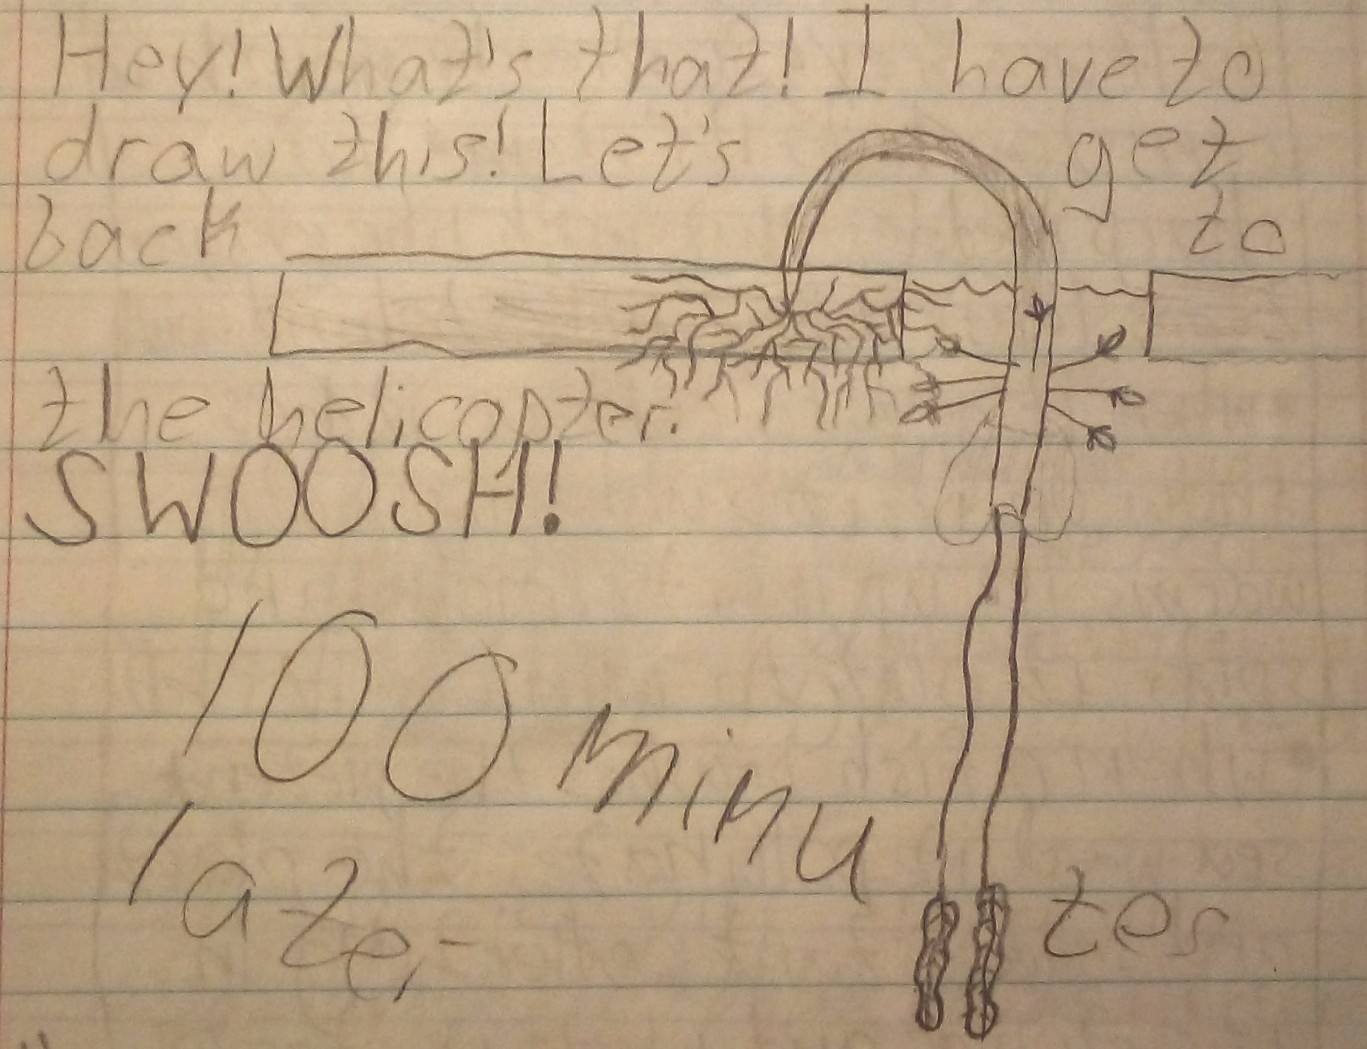 Hey! What's that! I have to
draw this! Let's get
back to
the helicopter.
SWOOSH!
100 minutes
later